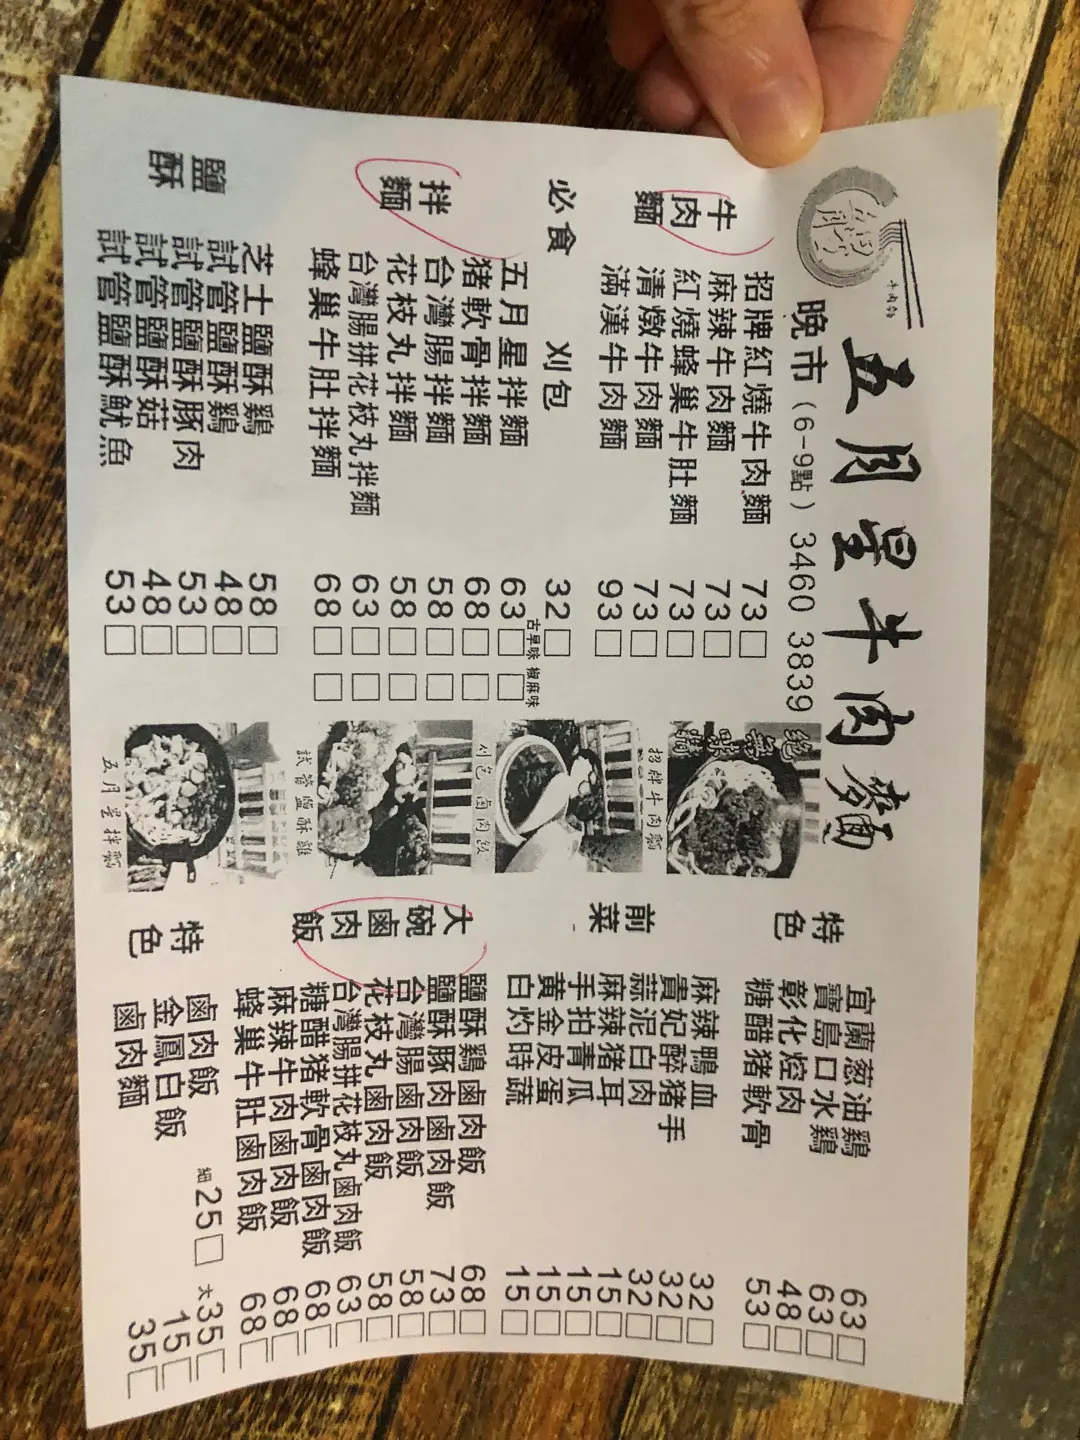 五月星牛肉麵
牛肉麵
晚市 (6-9點) 3460 3839
牛肉麵
招牌紅燒牛肉麵 73□
麻辣牛肉麵 73□
紅燒蜂巢牛肚麵 73□
清燉牛肉麵 73□
滿漢牛肉麵 93□
必食 刈包 32□
古早味 椒麻味
拌麵
五月星拌麵 63□ □
豬軟骨拌麵 68□ □
台灣腸拌麵 58□ □
花枝丸拌麵 58□ □
台灣腸拼花枝丸拌麵 63□ □
蜂巢牛肚拌麵 68□ □
鹽酥
芝士鹽酥鷄 58□
試管鹽酥鷄 48□
試管鹽酥豚肉 53□
試管鹽酥菇 48□
試管鹽酥魷魚 53□
絕無味精
招牌牛肉麵
刈包 鹵肉飯
試管鹽酥雞
五月星拌麵
特色
宜蘭葱油鷄 63□
寶島口水鷄 63□
彰化焢肉 48□
糖醋豬軟骨 53□
前菜
麻辣鴨血 32□
貴妃醉豬手 32□
蒜泥白肉 32□
麻辣豬耳 15□
手拍青瓜 15□
黃金皮蛋 15□
白灼時蔬 15□
大碗鹵肉飯
鹽酥鷄鹵肉飯 68□
鹽酥豚肉鹵肉飯 73□
台灣腸鹵肉飯 58□
花枝丸鹵肉飯 58□
台灣腸拼花枝丸鹵肉飯 63□
糖醋豬軟骨鹵肉飯 68□
麻辣牛肉鹵肉飯 68□
蜂巢牛肚鹵肉飯 68□
特色
鹵肉飯 細25□ 大35□
金鳳白飯 15□
鹵肉麵 35□